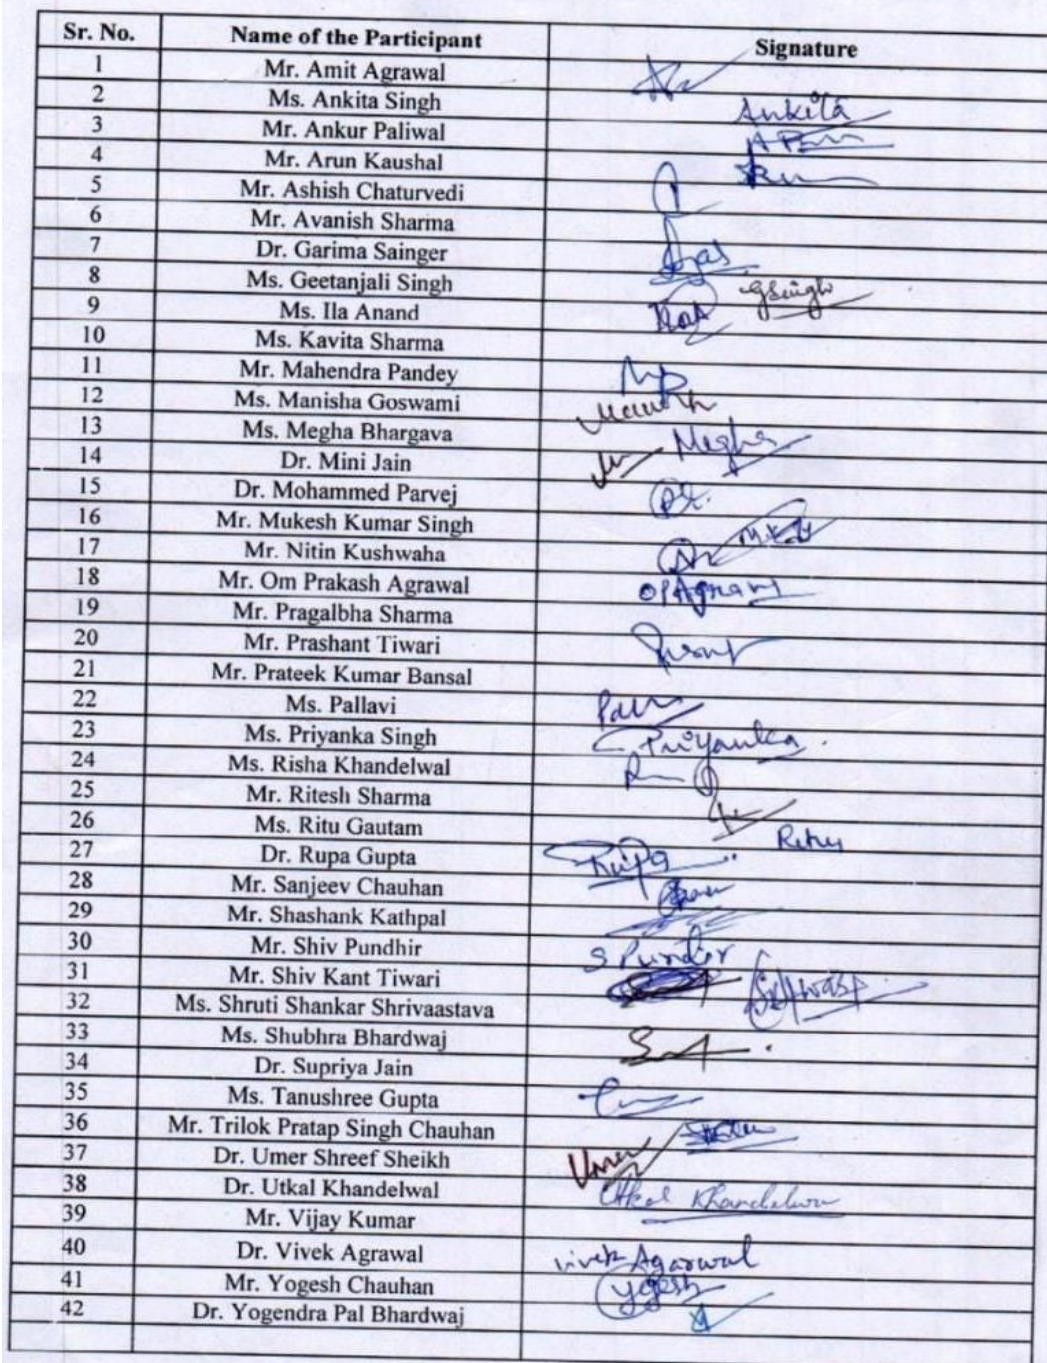 Sr. No. Name of the Participant Signature
1 Mr. Amit Agrawal
2 Ms. Ankita Singh Ankita
3 Mr. Ankur Paliwal
4 Mr. Arun Kaushal
5 Mr. Ashish Chaturvedi
6 Mr. Avanish Sharma
7 Dr. Garima Sainger
8 Ms. Geetanjali Singh GSingh
9 Ms. Ila Anand
10 Ms. Kavita Sharma
11 Mr. Mahendra Pandey
12 Ms. Manisha Goswami
13 Ms. Megha Bhargava Megha
14 Dr. Mini Jain
15 Dr. Mohammed Parvej
16 Mr. Mukesh Kumar Singh
17 Mr. Nitin Kushwaha
18 Mr. Om Prakash Agrawal
19 Mr. Pragalbha Sharma
20 Mr. Prashant Tiwari
21 Mr. Prateek Kumar Bansal
22 Ms. Pallavi
23 Ms. Priyanka Singh Priyanka
24 Ms. Risha Khandelwal
25 Mr. Ritesh Sharma
26 Ms. Ritu Gautam
27 Dr. Rupa Gupta Rupa
28 Mr. Sanjeev Chauhan
29 Mr. Shashank Kathpal
30 Mr. Shiv Pundhir S Pundir
31 Mr. Shiv Kant Tiwari
32 Ms. Shruti Shankar Shrivaastava
33 Ms. Shubhra Bhardwaj
34 Dr. Supriya Jain
35 Ms. Tanushree Gupta
36 Mr. Trilok Pratap Singh Chauhan
37 Dr. Umer Shreef Sheikh Umer
38 Dr. Utkal Khandelwal Utkal Khandelwal
39 Mr. Vijay Kumar
40 Dr. Vivek Agrawal vivek Agarwal
41 Mr. Yogesh Chauhan Yogesh
42 Dr. Yogendra Pal Bhardwaj